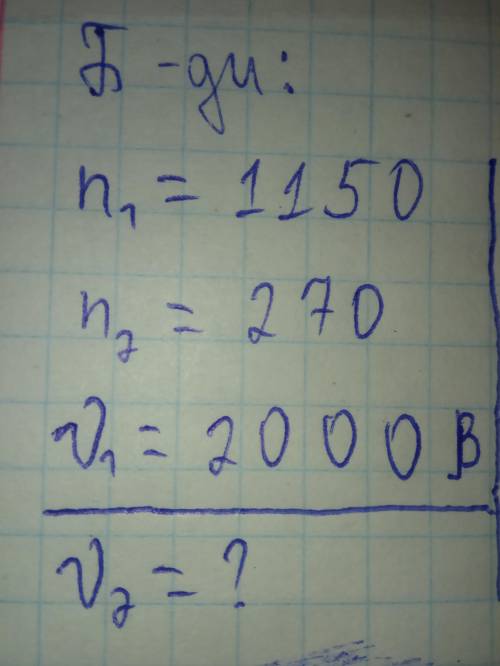 Б-ди:
n₁ = 1150
n₂ = 270
V₁ = 2000 В
V₂ = ?